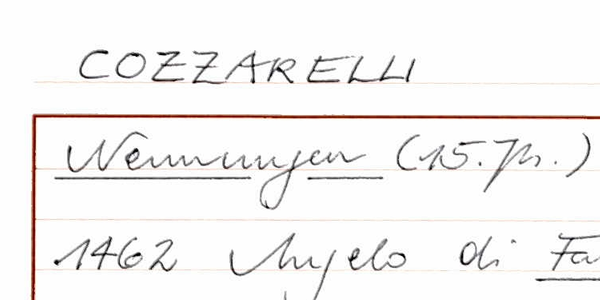 COZZARELLI
Nennungen (15. Jh.)
1462 Angelo di